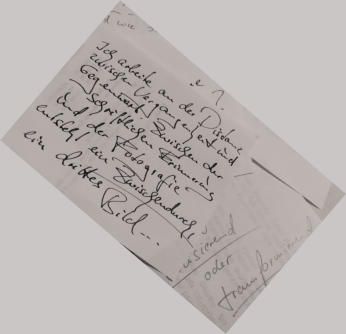 wie
e 1.
Ich arbeite an der Distanz
zwischen Vergangenheit und
Gegenwart. Zwischen der
schriftlichen Erinnerung
und der Fotografie
entsteht ein Zwischendurch
ein drittes
Bild...
oder
transformierend